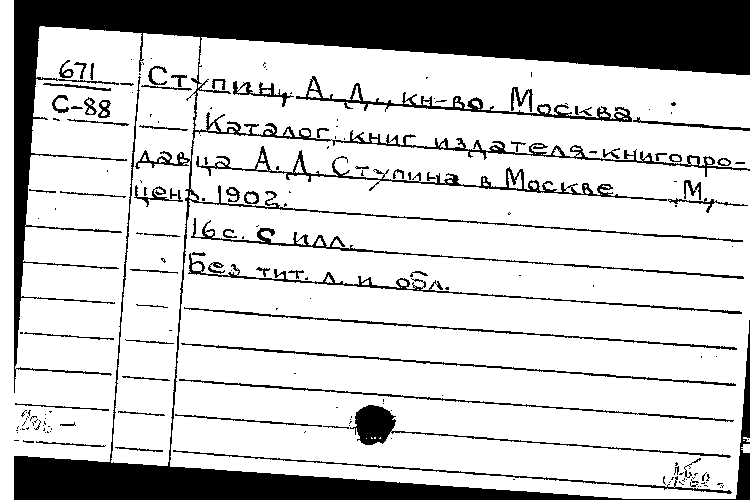 671
С-88
Ступин, А. Д., кн-во. Москва.
Каталог книг издателя-книгопро-
давца А. Д. Ступина в Москве. М.,
ценз. 1902.
16 с. с илл.
Без тит. л. и обл.